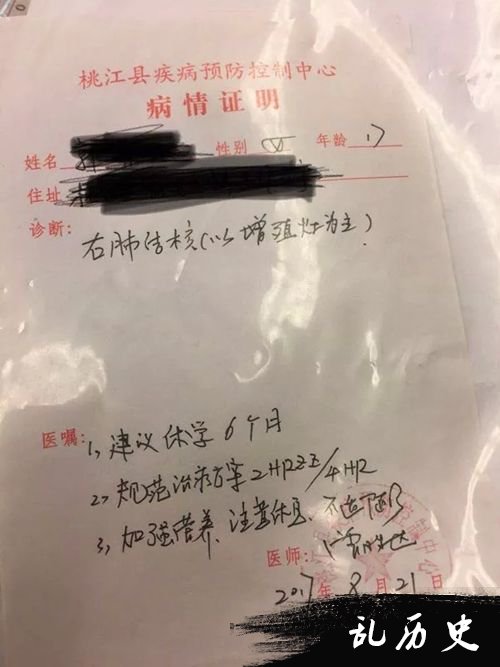 桃江县疾病预防控制中心
病情证明
姓名 性别 女 年龄 17
住址
诊断: 右肺结核(以增殖灶为主)
医嘱: 1, 建议休学6个月
2, 规范治疗方案 2HRZE/4HR
3, 加强营养、注意休息、不适随诊
医师:
2017年8月21日
乱历史